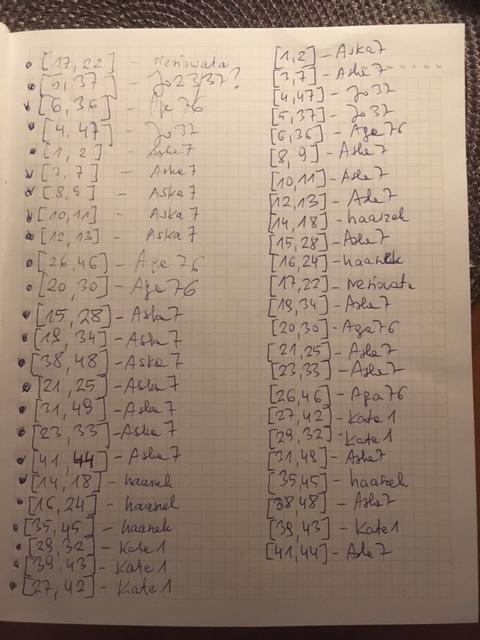 [17,22] - Nesiowata
[5,37] - Jo23/37?
[6,36] - Aga 76
[4,47] - Jo 37
[1,2] - Aska 7
[3,7] - Aska 7
[8,9] - Aska 7
[10,11] - Aska 7
[12,13] - Aska 7
[26,46] - Aga 76
[20,30] - Aga 76
[15,28] - Aska 7
[19,34] - Aska 7
[38,48] - Aska 7
[21,25] - Aska 7
[31,49] - Aska 7
[23,33] - Aska 7
[41,44] - Aska 7
[14,18] - haaszek
[16,24] - haaszek
[35,45] - haaszek
[29,32] - Kate 1
[39,43] - Kate 1
[27,42] - Kate 1
[1,2] - Aska 7
[3,7] - Aska 7
[4,47] - Jo 37
[5,37] - Jo 37
[6,36] - Aga 76
[8,9] - Aska 7
[10,11] - Aska 7
[12,13] - Aska 7
[14,18] - haaszek
[15,28] - Aska 7
[16,24] - haaszek
[17,22] - Nesiowata
[19,34] - Aska 7
[20,30] - Aga 76
[21,25] - Aska 7
[23,33] - Aska 7
[26,46] - Aga 76
[27,42] - Kate 1
[29,32] - Kate 1
[31,49] - Aska 7
[35,45] - haaszek
[38,48] - Aska 7
[39,43] - Kate 1
[41,44] - Aska 7